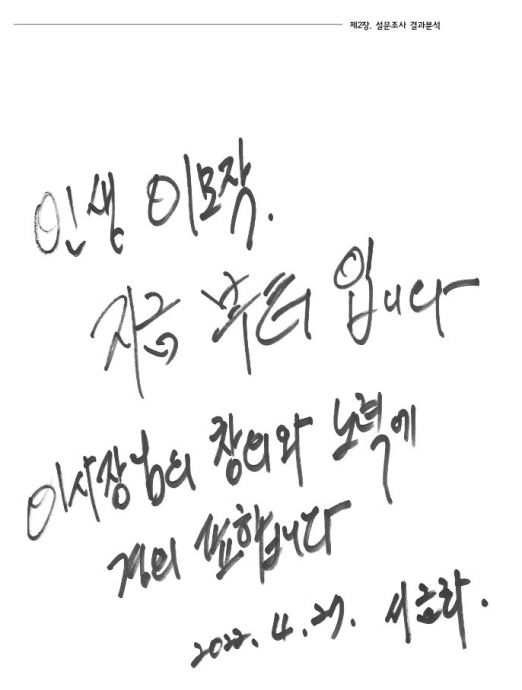 제2장. 설문조사 결과분석
인생 이모작.
지금 부터 입니다
이사장님의 창의와 노력에
경의 표합니다
2022. 4. 27.